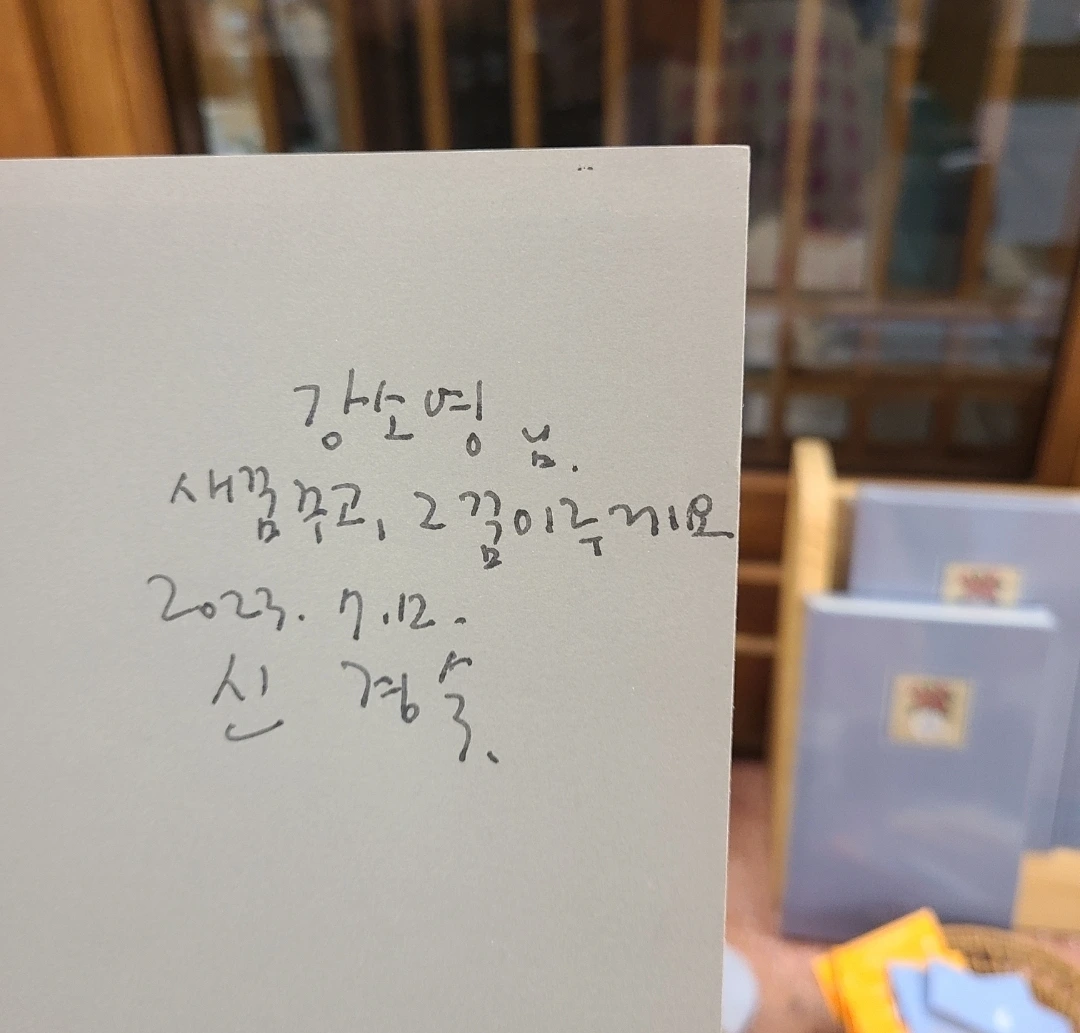 강소영 님.
새꿈 꾸고, 그 꿈 이루게요
2023. 7. 12.
신 경숙.